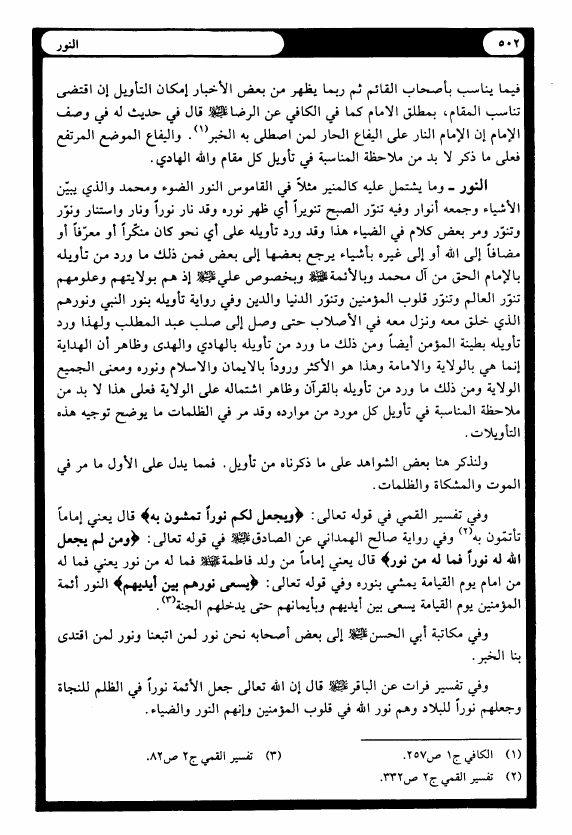 ٥٠٢
النور
فيما يناسب بأصحاب القائم ثم ربما يظهر من بعض الأخبار إمكان التأويل إن اقتضى
تناسب المقام، بمطلق الامام كما في الكافي عن الرضا ﷺ قال في حديث له في وصف
الإمام إن الإمام النار على اليفاع الحار لمن اصطلى به الخبر(١). واليفاع الموضع المرتفع
فعلى ما ذكر لا بد من ملاحظة المناسبة في تأويل كل مقام والله الهادي.
النور ـ وما يشتمل عليه كالمنير مثلاً في القاموس النور الضوء ومحمد والذي يبيّن
الأشياء وجمعه أنوار وفيه تنوّر الصبح تنويراً أي ظهر نوره وقد نار نوراً ونار واستنار ونوّر
وتنوّر ومر بعض كلام في الضياء هذا وقد ورد تأويله على أي نحو كان منكّراً أو معرّفاً أو
مضافاً إلى الله أو إلى غيره بأشياء يرجع بعضها إلى بعض فمن ذلك ما ورد من تأويله
بالإمام الحق من آل محمد وبالأئمة ﷺ وبخصوص علي ﷺ إذ هم بولايتهم وعلومهم
تنوّر العالم وتنوّر قلوب المؤمنين وتنوّر الدنيا والدين وفي رواية تأويله بنور النبي ونورهم
الذي خلق معه ونزل معه في الأصلاب حتى وصل إلى صلب عبد المطلب ولهذا ورد
تأويله بطينة المؤمن أيضاً ومن ذلك ما ورد من تأويله بالهادي والهدى وظاهر أن الهداية
إنما هي بالولاية والامامة وهذا هو الأكثر وروداً بالايمان والاسلام ونوره ومعنى الجميع
الولاية ومن ذلك ما ورد من تأويله بالقرآن وظاهر اشتماله على الولاية فعلى هذا لا بد من
ملاحظة المناسبة في تأويل كل مورد من موارده وقد مر في الظلمات ما يوضح توجيه هذه
التأويلات.
ولنذكر هنا بعض الشواهد على ما ذكرناه من تأويل. فمما يدل على الأول ما مر في
الموت والمشكاة والظلمات.
وفي تفسير القمي في قوله تعالى: ﴿ويجعل لكم نوراً تمشون به﴾ قال يعني إماماً
تأتمّون به(٢) وفي رواية صالح الهمداني عن الصادق ﷺ في قوله تعالى: ﴿ومن لم يجعل
الله له نوراً فما له من نور﴾ قال يعني إماماً من ولد فاطمة ﷺ فما له من نور يعني فما له
من امام يوم القيامة يمشي بنوره وفي قوله تعالى: ﴿يسعى نورهم بين أيديهم﴾ النور أئمة
المؤمنين يوم القيامة يسعى بين أيديهم وبأيمانهم حتى يدخلهم الجنة(٣).
وفي مكاتبة أبي الحسن ﷺ إلى بعض أصحابه نحن نور لمن اتبعنا ونور لمن اقتدى
بنا الخبر.
وفي تفسير فرات عن الباقر ﷺ قال إن الله تعالى جعل الأئمة نوراً في الظلم للنجاة
وجعلهم نوراً للبلاد وهم نور الله في قلوب المؤمنين وإنهم النور والضياء.
(١) الكافي ج١ ص٢٥٧.
(٢) تفسير القمي ج٢ ص٣٣٢.
(٣) تفسير القمي ج٢ ص٨٢.